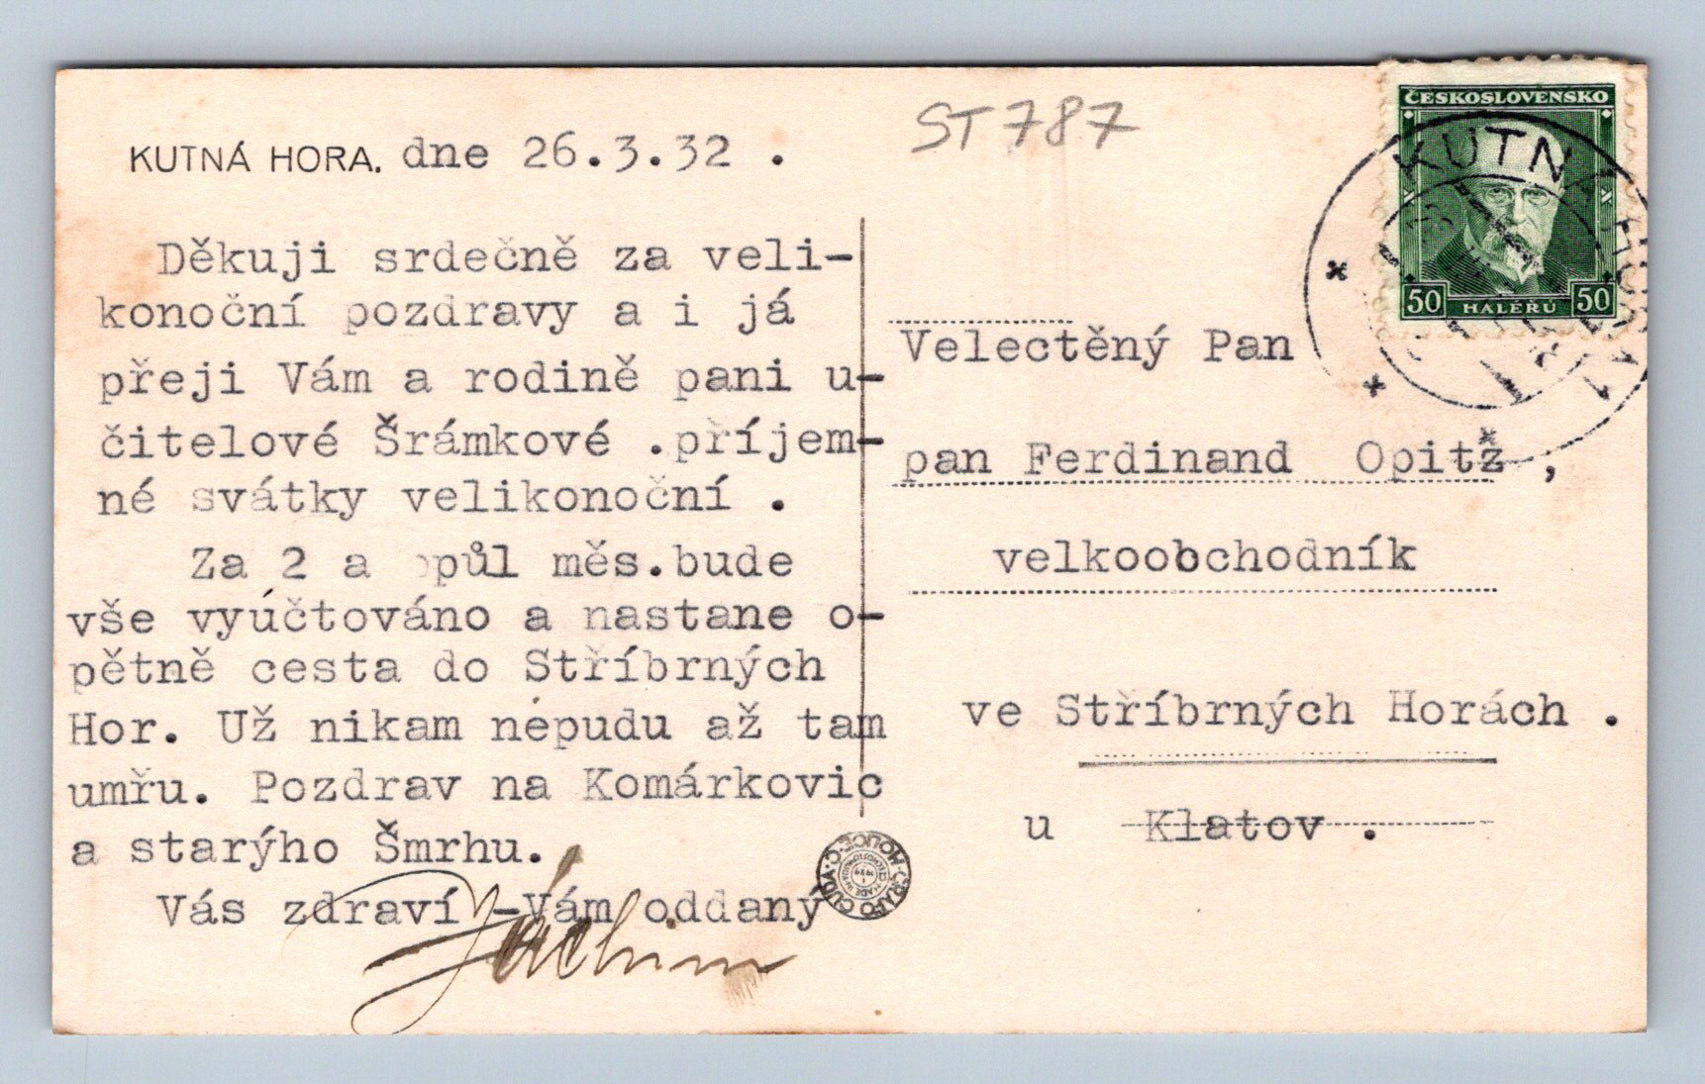 KUTNÁ HORA. dne 26.3.32 .
Děkuji srdečně za veli-
konoční pozdravy a i já
přeji Vám a rodině pani u-
čitelové Šrámkové .příjem-
né svátky velikonoční .
Za 2 a půl měs.bude
vše vyúčtováno a nastane o-
pětně cesta do Stříbrných
Hor. Už nikam nepudu až tam
umřu. Pozdrav na Komárkovic
a starýho Šmrhu.
Vás zdraví -Vám oddaný
Jáchim
ST787
ČESKOSLOVENSKO
50 HALÉŘŮ 50
KUTNÁ HORA 1
Velectěný Pan
pan Ferdinand Opitž ,
velkoobchodník
ve Stříbrných Horách .
u Klatov .
GRAFO ČUDA HOLICE